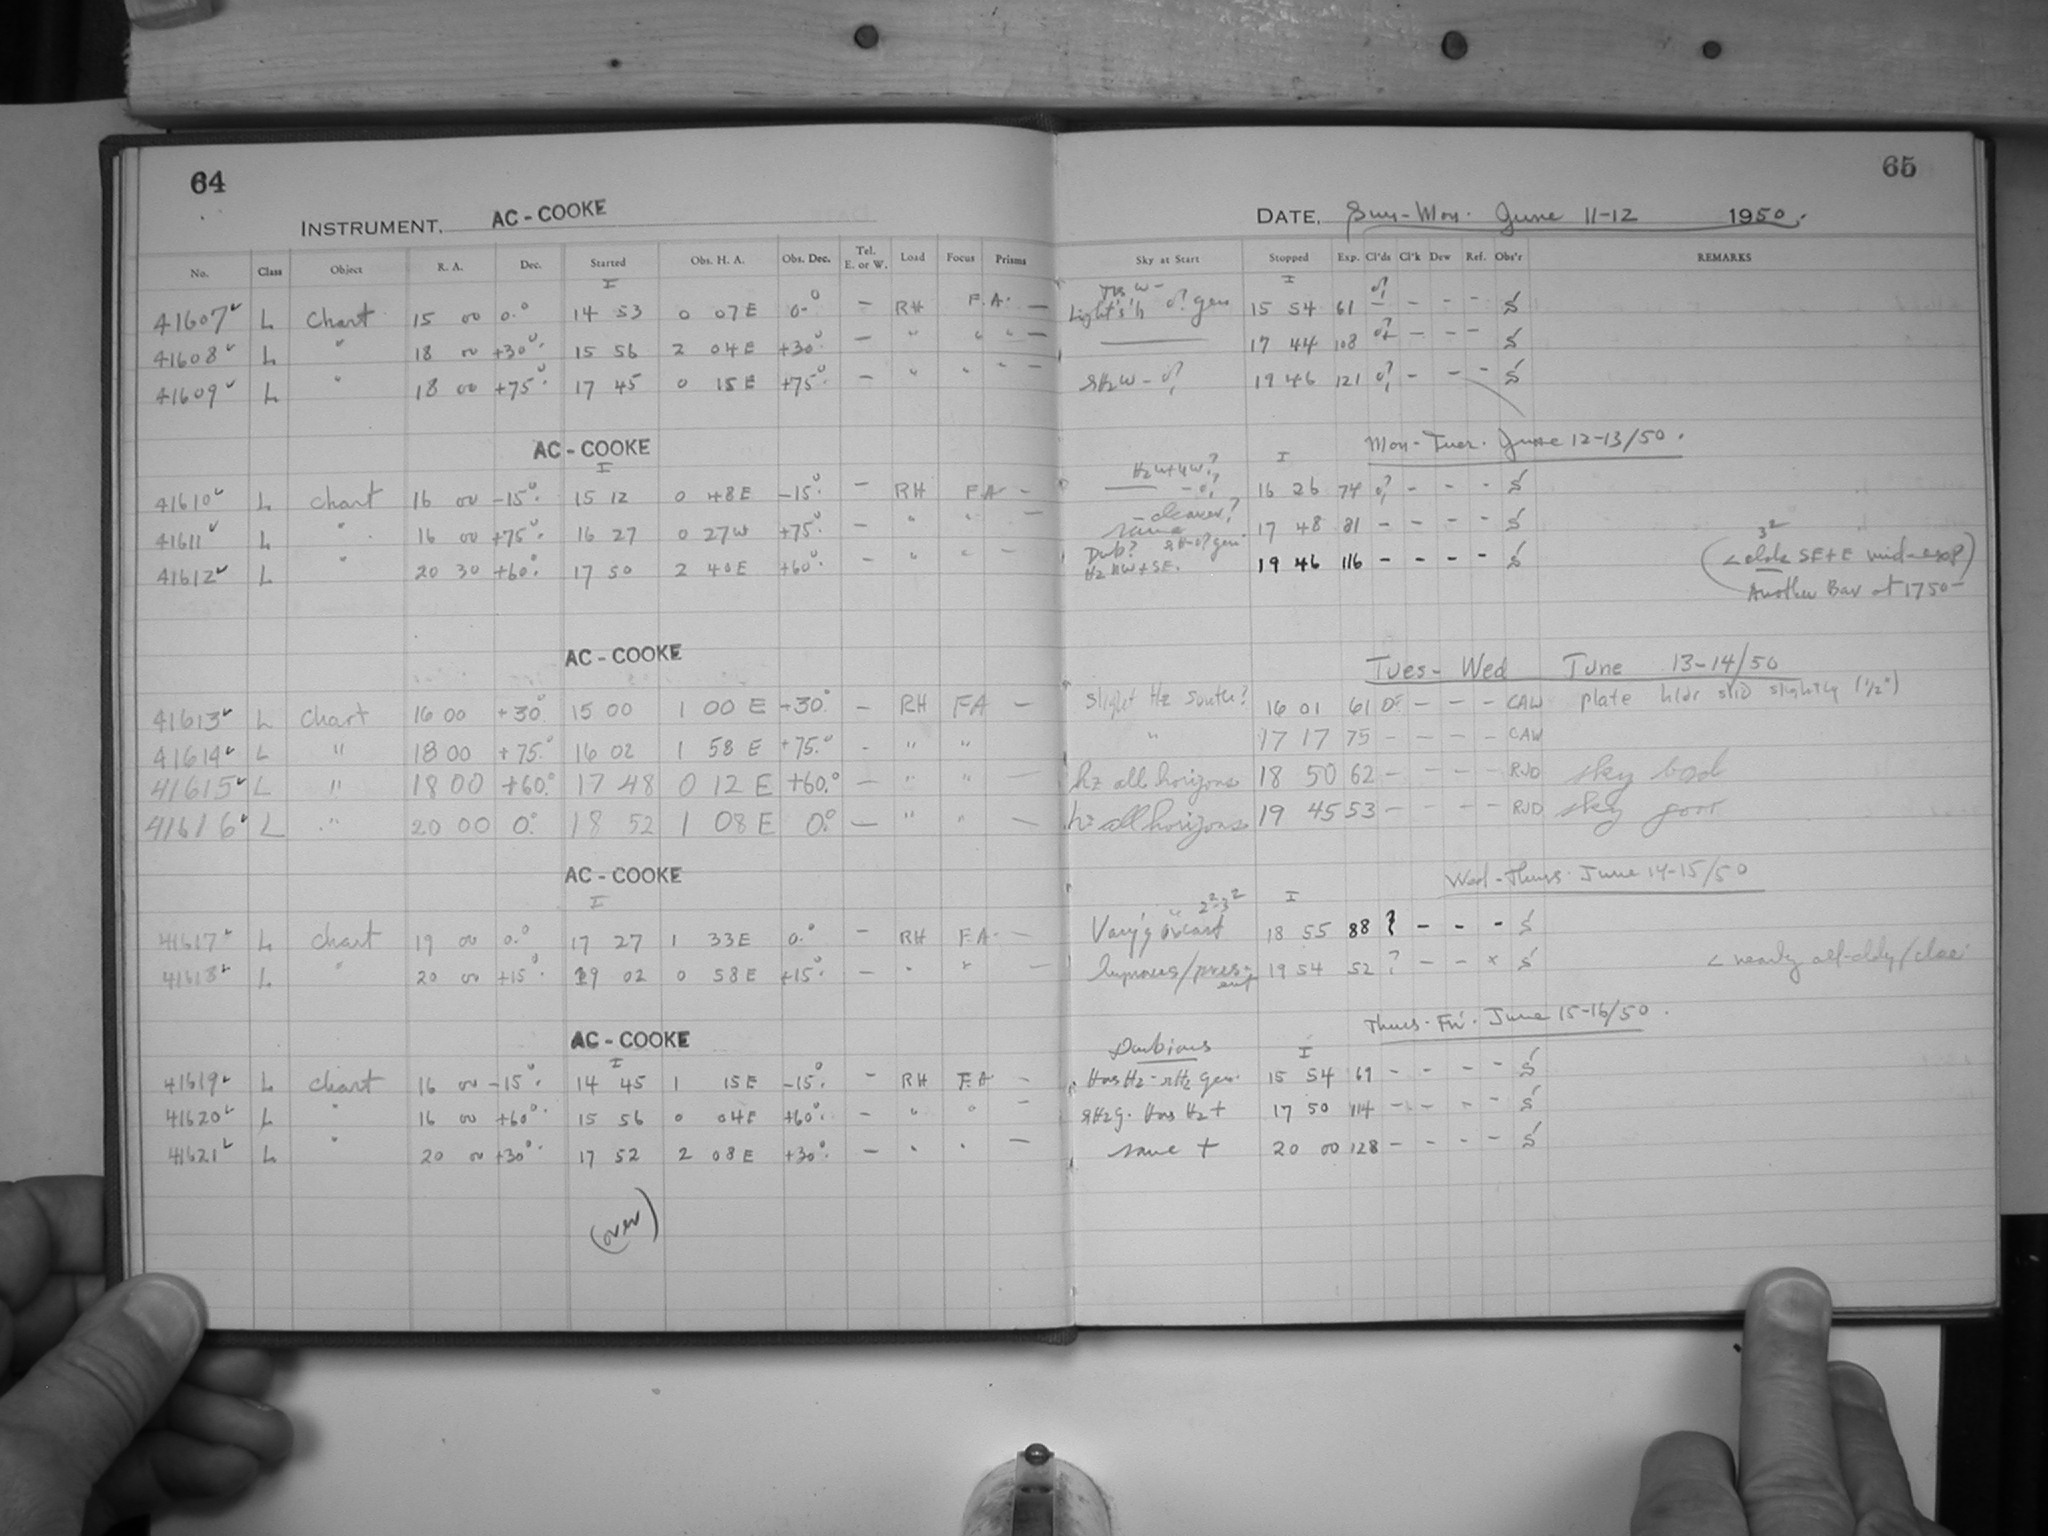 64
INSTRUMENT. AC - COOKE
No. Class Object R. A. Dec. Started Obs. H. A. Obs. Dec. Tel. E. or W. Load Focus Prisms
I
41607 L Chart 15 00 0.° 14 53 0 07 E 0.° – RH F.A. –
41608 L " 18 00 +30.° 15 56 2 04 E +30.° – " " –
41609 L " 18 00 +75.° 17 45 0 15 E +75.° – " " –
AC - COOKE
I
41610 L Chart 16 00 –15.° 15 12 0 48 E –15.° – RH FA –
41611 L " 16 00 +75.° 16 27 0 27 W +75.° – " –
41612 L " 20 30 +60.° 17 50 2 40 E +60.° – " " –
AC - COOKE
41613 L Chart 16 00 +30.° 15 00 1 00 E +30.° – RH FA –
41614 L " 18 00 +75.° 16 02 1 58 E +75.° – " "
41615 L " 18 00 +60.° 17 48 0 12 E +60.° – " " –
41616 L " 20 00 0.° 18 52 1 08 E 0.° – " " –
AC - COOKE
I
41617 L Chart 19 00 0.° 17 27 1 33 E 0.° – RH F.A. –
41618 L " 20 00 +15.° 19 02 0 58 E +15.° – " " –
AC - COOKE
I
41619 L Chart 16 00 –15.° 14 45 1 15 E –15.° – RH F.A. –
41620 L " 16 00 +60.° 15 56 0 04 E +60.° – " " –
41621 L " 20 00 +30.° 17 52 2 08 E +30.° – " " –
(over)
65
DATE. Sun-Mon. June 11-12 1950.
Sky at Start Stopped Exp. Cl'ds Cl'k Dew Ref. Obs'r REMARKS
I
gen 15 54 61 – – – S
17 44 108 – – – S
19 46 121 – – – S
Mon-Tues. June 12-13/50.
I
16 26 74 – – – S
– clearer?
same 17 48 81 – – – – S
Dub?
Hz NW + SE. 19 46 116 – – – – S
SE + E mid-exp)
Another Bar at 1750–
Tues- Wed June 13-14/50
slight Hz south? 16 01 61 – – – CAW plate hldr slid slightly (1/2")
" 17 17 75 – – – – CAW
hz all horizons 18 50 62 – – – – RJD sky bad
hz all horizons 19 45 53 – – – – RJD sky poor
Wed-Thurs. June 14-15/50
I
Vary'g 18 55 88 ? – – – S
Improves/pres-
ent 19 54 52 ? – – x S < nearly all-cldy/
Thurs-Fri. June 15-16/50.
Dubious
I
Has Hz - gen. 15 54 69 – – – – S
Has Hz + 17 50 114 – – – – S
same + 20 00 128 – – – – S